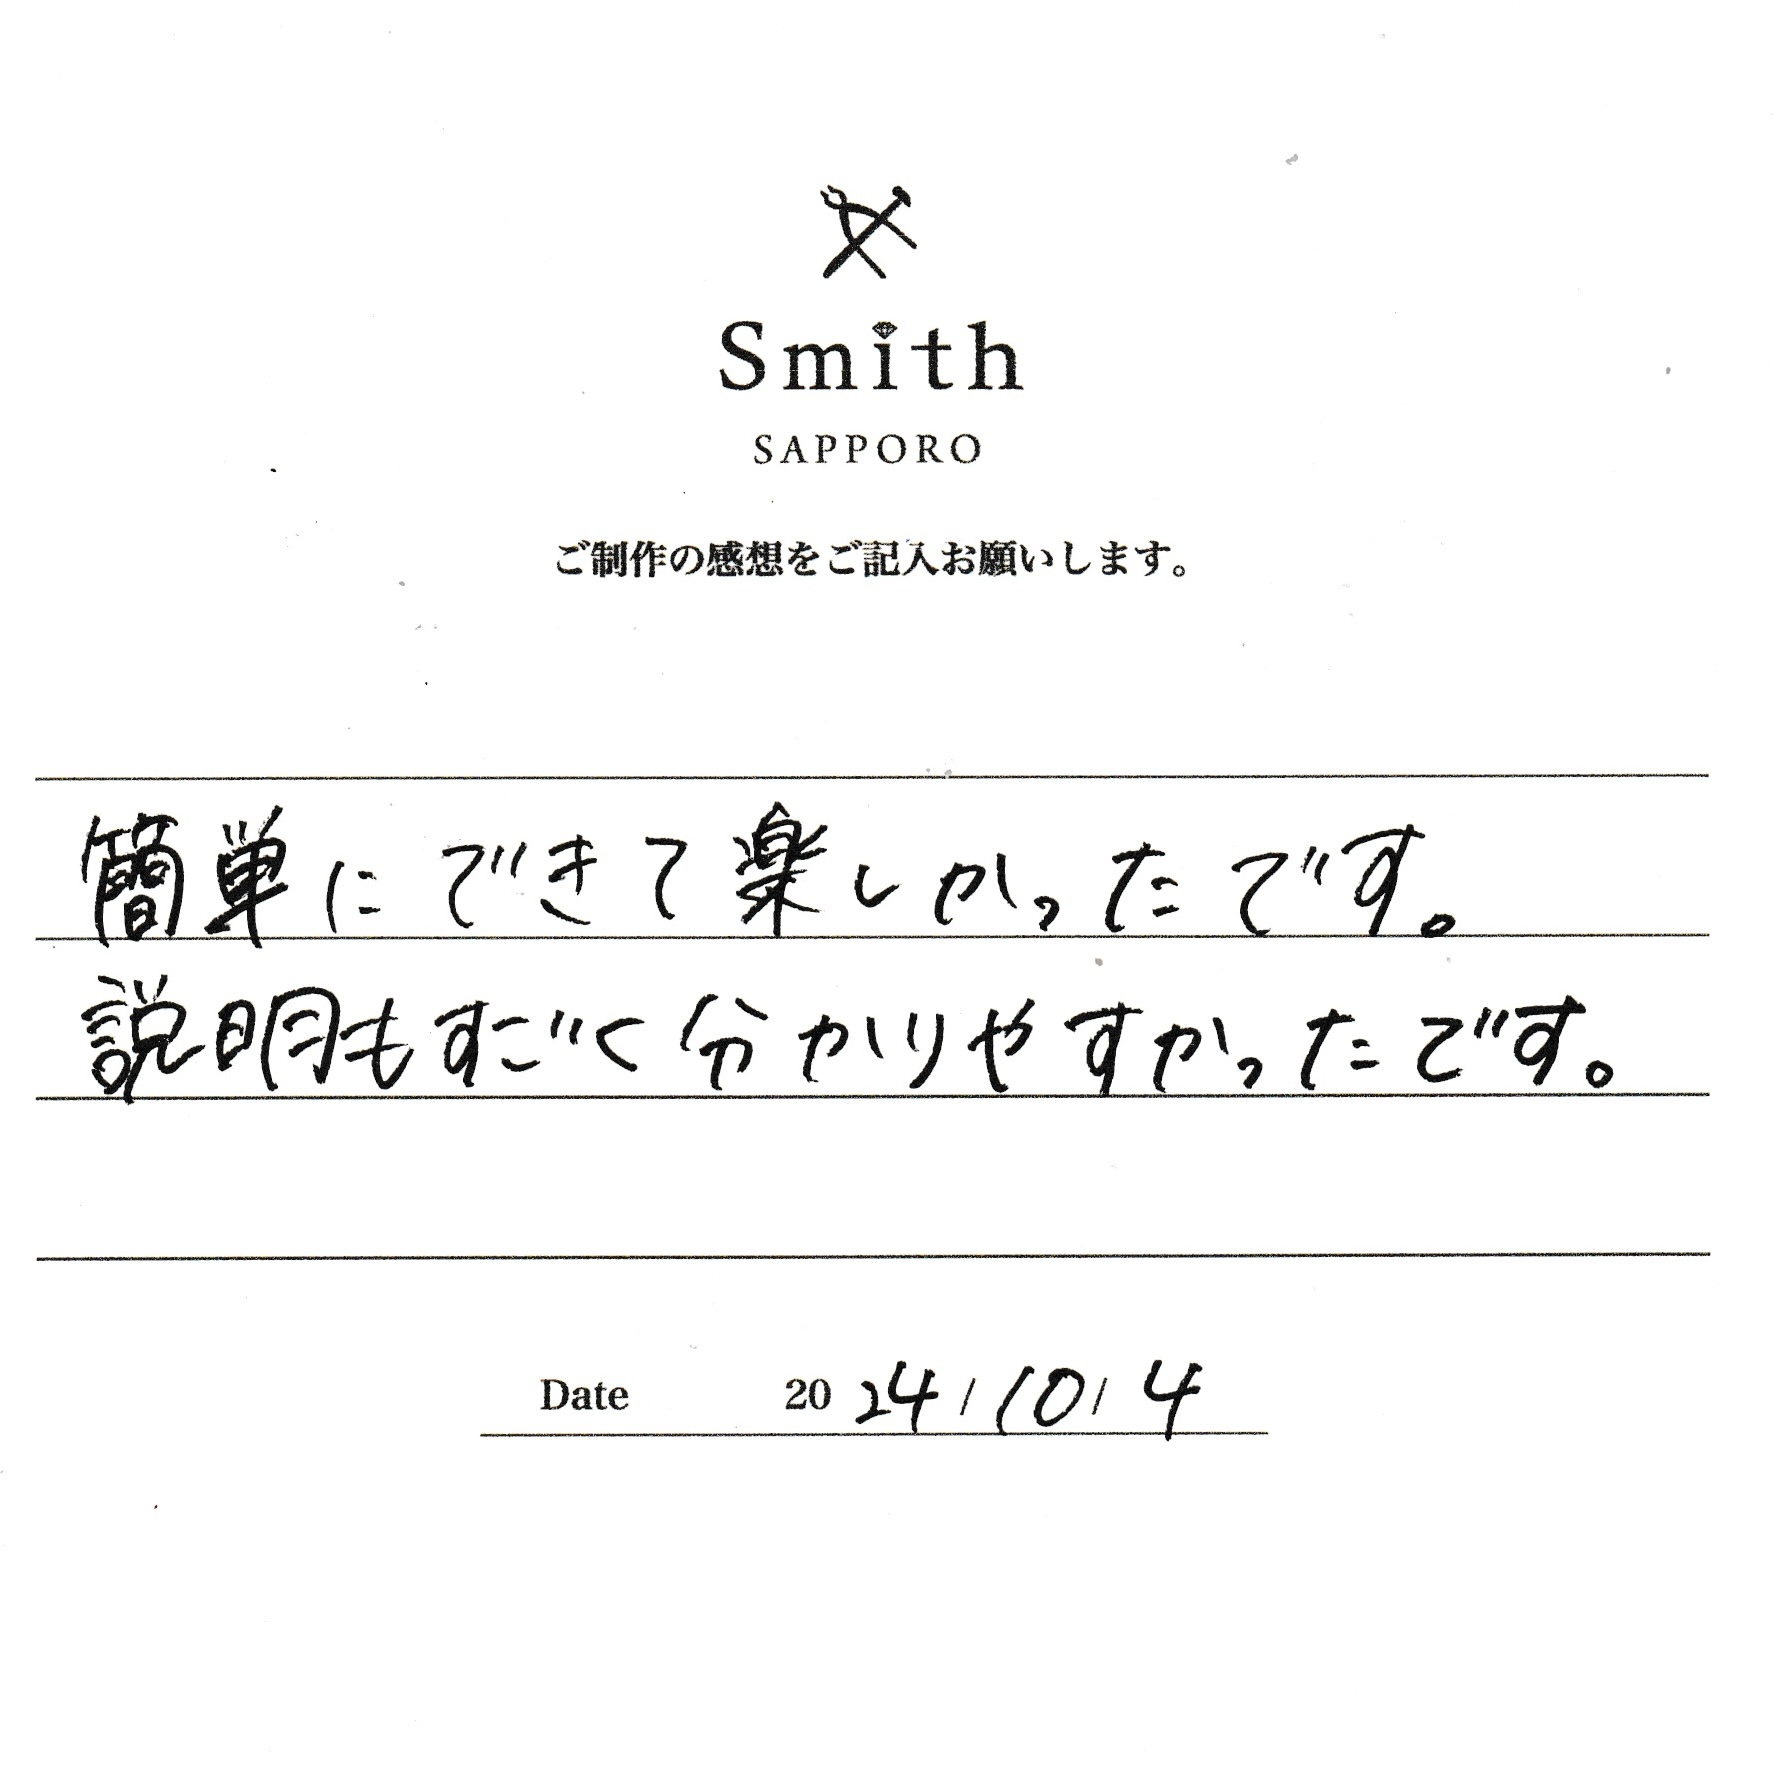 Smith
SAPPORO
ご制作の感想をご記入お願いします。
簡単にできて楽しかったです。
説明もすごく分かりやすかったです。
Date 2024/10/4